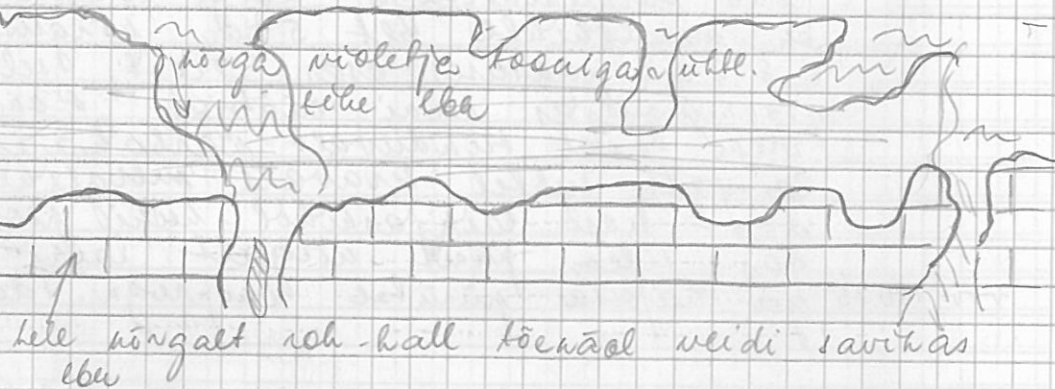 nõrga violetja tooniga ühtl.
tihe lbu
hele nõrgalt roh-hall tõenäol veidi savikas
lbu